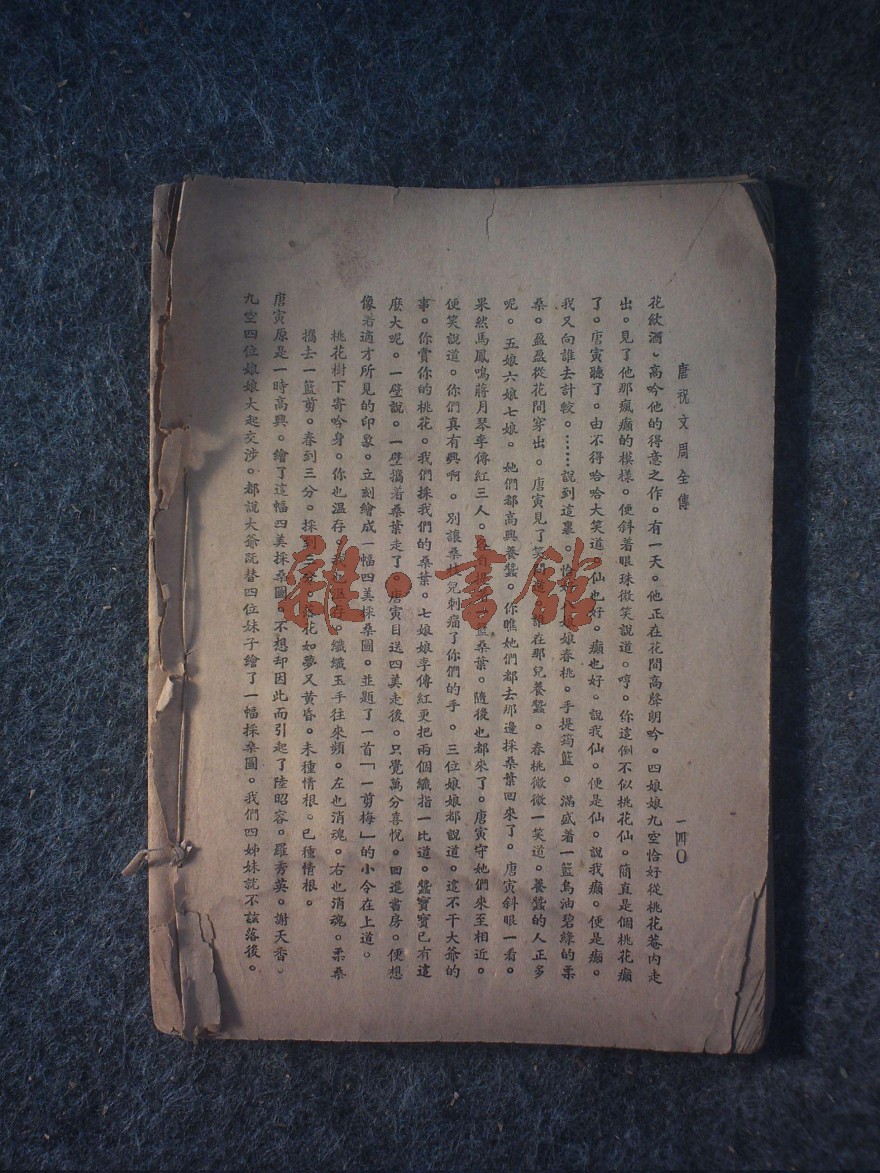 唐祝文周全傳
一四〇
花飲酒。高吟他的得意之作。有一天。他正在花間高聲朗吟。四娘娘九空恰好從桃花菴內走
出。見了他那瘋癲的模樣。便斜着眼珠微笑說道。哼。你這倒不似桃花仙。簡直是個桃花癲
了。唐寅聽了。由不得哈哈大笑道。仙也好。癲也好。說我仙。便是仙。說我癲。便是癲。
我又向誰去計較。……說到這裏。恰好八娘娘春桃。手提筠籃。滿盛着一籃烏油碧綠的柔
桑。盈盈從花間穿出。唐寅見了笑問道。誰在那兒養蠶。春桃微微一笑道。養蠶的人正多
呢。五娘六娘七娘。她們都高興養蠶。你瞧她們都去那邊採桑葉回來了。唐寅斜眼一看。
果然馬鳳鳴蔣月琴李傳紅三人。籃桑葉。隨後也都來了。唐寅守她們來至相近。
便笑說道。你們真有興啊。別讓桑枝兒刺痛了你們的手。三位娘娘都說道。這不干大爺的
事。你賞你的桃花。我們採我們的桑葉。七娘娘李傳紅更把兩個纖指一比道。蠶寶寶已有這
麼大呢。一壁說。一壁攜着桑葉走了。唐寅目送四美走後。只覺萬分喜悅。回進書房。便想
像着適才所見的印象。立刻繪成一幅四美採桑圖。並題了一首「一剪梅」的小令在上道。
桃花樹下寄吟身。你也溫存。我也溫存。纖纖玉手往來頻。左也消魂。右也消魂。柔桑
攜去一籃剪。春到三分。採到三分。花如夢又黃昏。未種情根。已種情根。
唐寅原是一時高興。繪了這幅四美採桑圖。不想却因此而引起了陸昭容。羅秀英。謝天香。
九空四位娘娘大起交涉。都說大爺既替四位妹子繪了一幅採桑圖。我們四姊妹就不該落後。
雜·書館